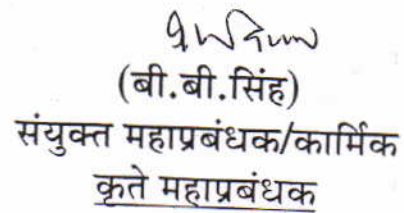 (बी.बी.सिंह)
संयुक्त महाप्रबंधक/कार्मिक
कृते महाप्रबंधक